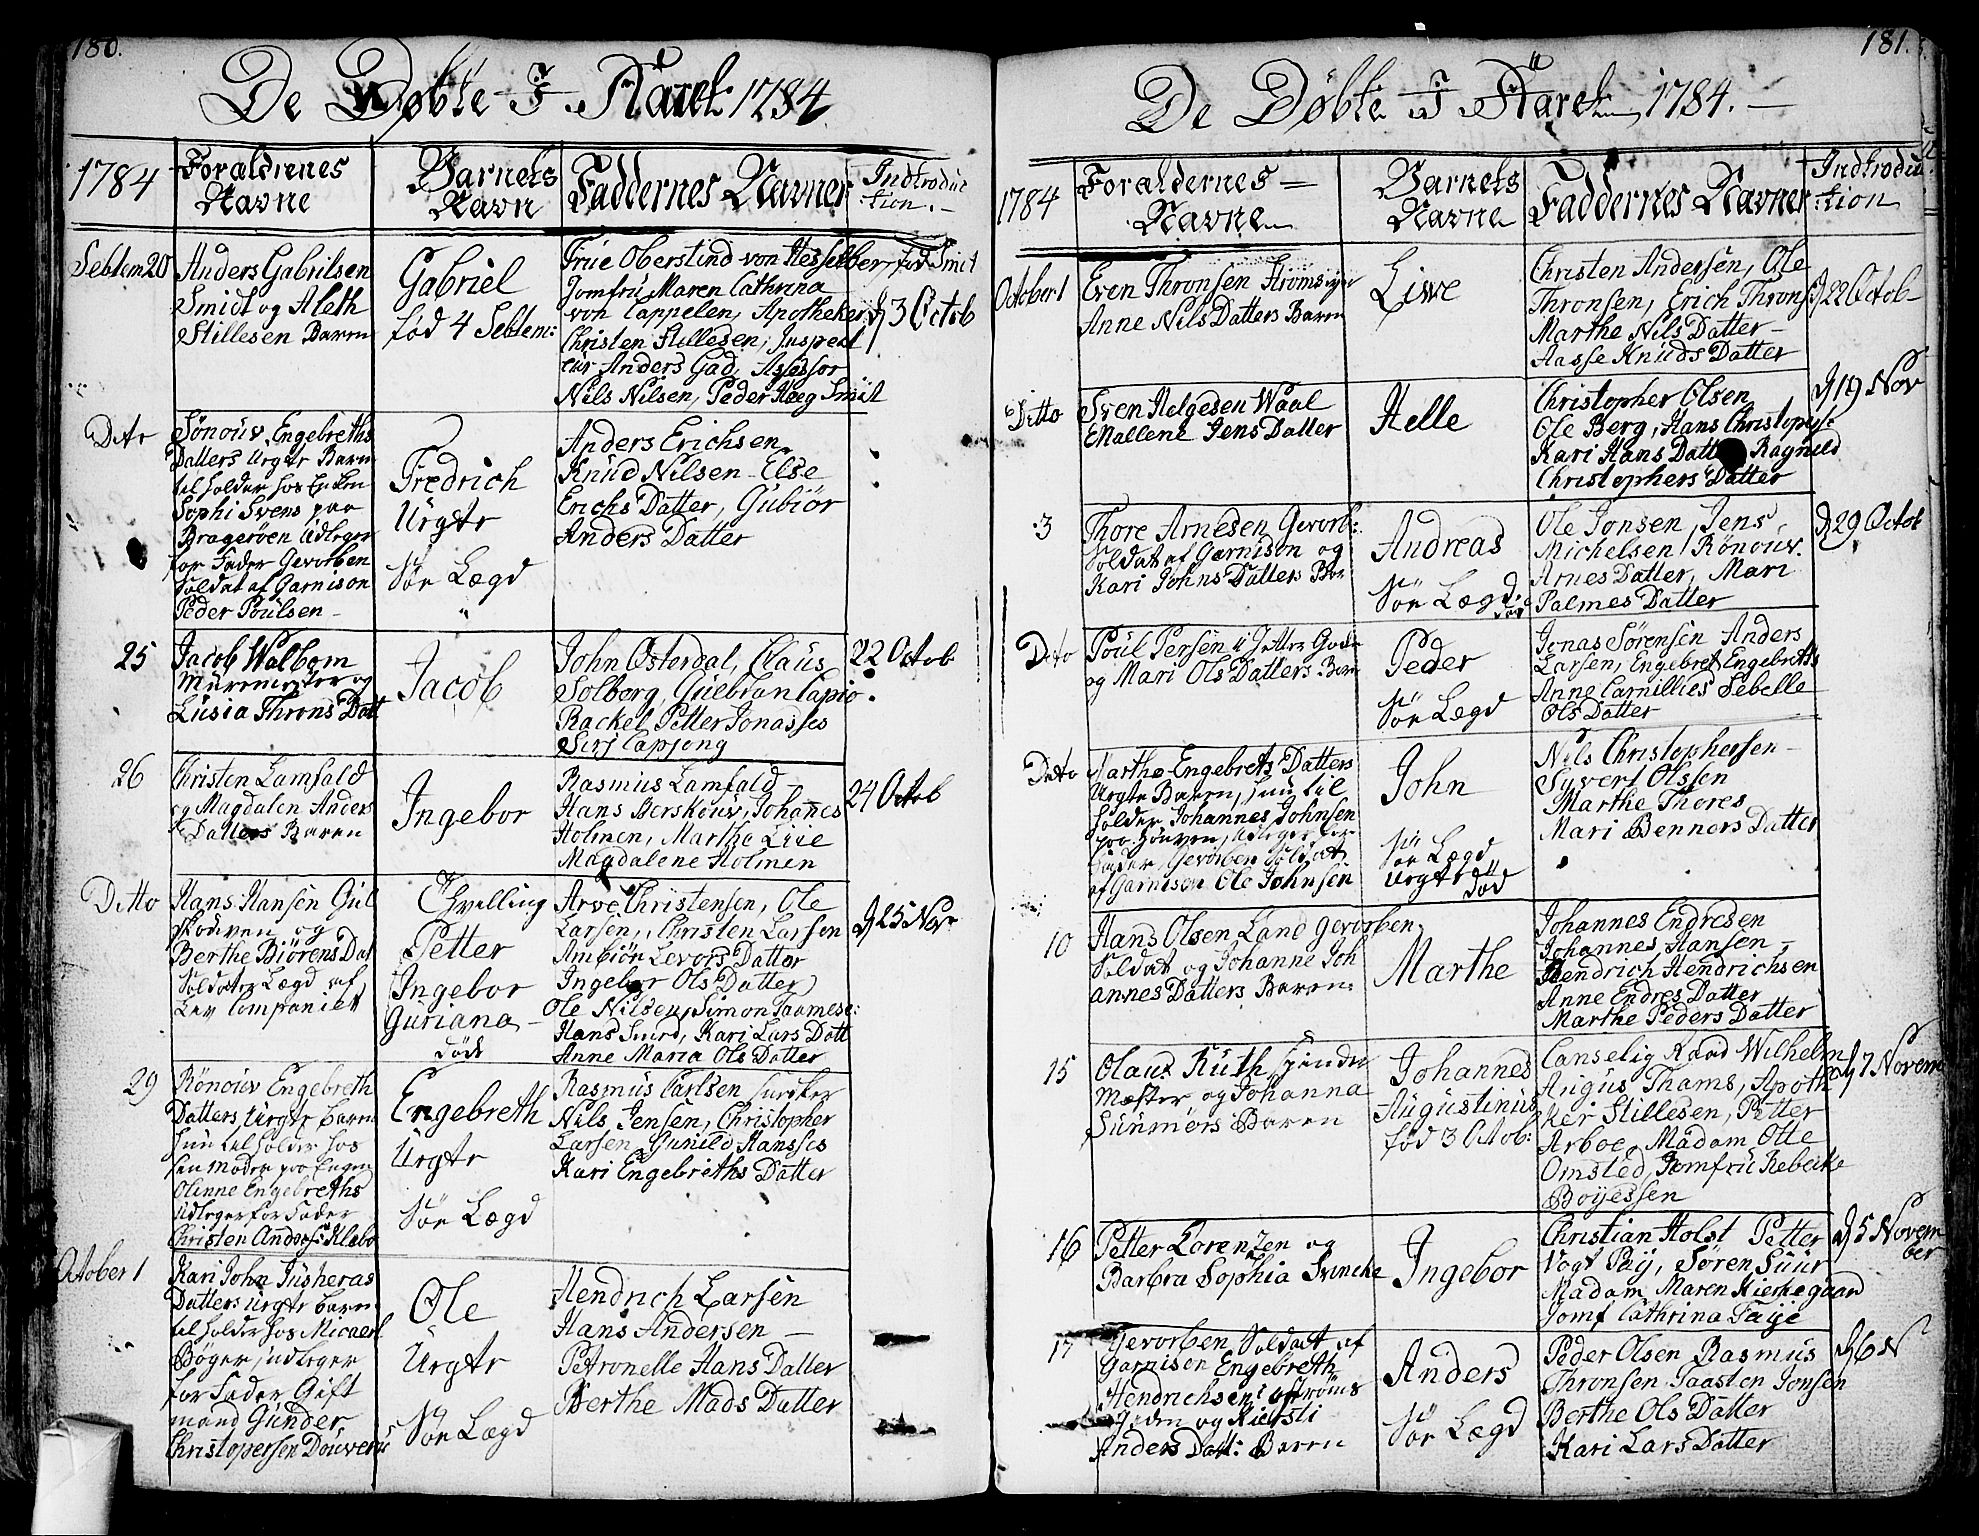 180.
De Døbte I Aaret 1784
1784
Forældrenes
Navne
Barnets
Navn
Faddernes Navner
Indtroduc
tion.
Sebtem 20
Anders Gabrilsen
Smidt og Aleth
Stillesen Baren
Gabriel
fød 4 Sebtem:
Frue Oberstind von Hesselber, fød Smit
Jomfru Maren Cathrina
von Cappelen, Apotheker
Christen Stillesen, Inspect
eur Anders Gad, Assessor
Nils Nilsen, Peder Høeg Smit
d 3 Octob
Ditto
Sønouv Engebreths
Datters Urgte Barn
til holder hos Enken
Sophi Svens paa
Bragerøen Udleger
for Fader Gevorben
Soldat af Garnison
Peder Poulsen
Fredrich
Urgte
Sør Lægd
Anders Erichsen
Knud Nilsen Else
Erichs Datter, Gubiør
Anders Datter
25
Jacob Walbom
Murmester og
Lusia Throns Datt
Jacob
John Osterdal, Claus
Solborg, Guebran Capio
Rackel Petter Jonasses
Sirj Capjong
22 Octob
26
Christen Lamfald
og Magdalen Anders
Datters Baren
Ingebor
Rasmus Lamfald
Hans Berskouv, Johannes
Holmen, Marthe Lise
Magdalene Holmen
24 Octob
Ditto
Hans Hansen Gul
skouven og
Berthe Biørens Dat
Soldater Lægd af
Lev Companiet
Thvilling
Petter
Ingebor
Guriana
døde
Arve Christensen, Ole
Larsen, Christen Larsen
Ambiør Levors Datter
Ingebor Ols Datter
Ole Nilsen, Simon Taamese:
Hans Suurd, Kari Lars Datt
Anne Maria Ols Datter
d 25 Nov
29
Rønouv Engebreth
Datters Urgte barn
hun til holder hos
sin Moder paa Engen
Olinne Engebreths
udleger for Fader
Christen Anders: Klebo
Engebreth
Urgte
Sør Lægd
Rasmus Carlsen
Nils Jensen, Christopher
Larsen, Gunild Hansses
Kari Engebreths Datter
October 1
Kari John Jusheras
Datters Urgte barn
til holder hos Micaerl
Bøger, udleger
for Fader Gift
mand Gunder
Christopersen Douveru
Ole
Urgte
Sør Lægd
Hendrich Larsen
Hans Andersen
Petronelle Hans Datter
Berthe Mads Datter
181.
De Døbte I Aaret 1784.
1784
Foraldernes
Navne
Barnets
Navne
Faddernes Navner
Indtroduc
tion
October 1
Even Thronsen Strømsøye
Anne Nils Datters Baren
Live
Christen Andersen, Ole
Thronsen, Erich Throns
Marthe Nils Datter
Aasse Knuds Datter
d 22 Octob
Ditto
Sven Helgesen Waal
Mallene Jens Datter
Helle
Christopher Olsen
Ole Berg, Hans Christophs:
Kari Hans Datter Ragnild
Christophers Datter
d 19 Nov
3
Thore Arnesen Gevorb:
Soldat af Garnison og
Kari Johns Datters Bar
Andreas
Sør Lægd.
Ole Jonsen, Jens
Michelsen, Rønouv
Arnes Datter, Mari
Palmes Datter
d 29 Octob
Ditto
Poul Persen
og Mari Ols Datters Barn
Peder
Sør Lægd
Jonas Sørensen Anders
Larsen, Engebret Engebreths
Anne Camillies Sebelle
Ols Datter
Ditto
Marthe Engebrets Datters
Urgte Baren, hun til
holder Johannes Johnsen
udleger for
Fader, Gevorben Soldat
af Garnison Ole Johnsen
John
Sør Lægd
Urgte
død
Nils Christophersen
Syvert Olssen
Marthe Thores
Mari Benners Datter
10
Hans Olsen Land Gevorben
Soldat og Johanne Joh
annes Datters Baren:
Marthe
Johannes Endresen
Johannes Hansen
Hendrich Hendrichsen
Anne Endres Datter
Marthe Peders Datter
15
Olaus Ruth Spinde
Mæster og Johanna
Sunmørs Baren
Johannes
Augustinus
fød 3 Octob:
Canselig Raad Wilhelm
Augus Thams, Apoth
ker Stillesen, Petter
Arboe, Madam Otte
Omsted, Jomfru Rebecke
Boyessen
d 7 Novem
16
Petter Lorenzen og
Barbra Sophia Svincke
Ingebor
Christian Holst Petter
Vogt Paÿ, Søren Suur
Madam Maren Kierkegaard
Jomf Cathrina Faÿe
d 5 Novem
ber
17
Gevorben Soldat af
Garnison Engebreth
Hendrichsen: Strøms
Jeden og Kiersti
Anders Dat: Baren
Anders
Sør Lægd
Peder Olsen Rasmus
Thronsen Taasten Jonsen
Berthe Ols Datter
Kari Lars Datter
d 6 N